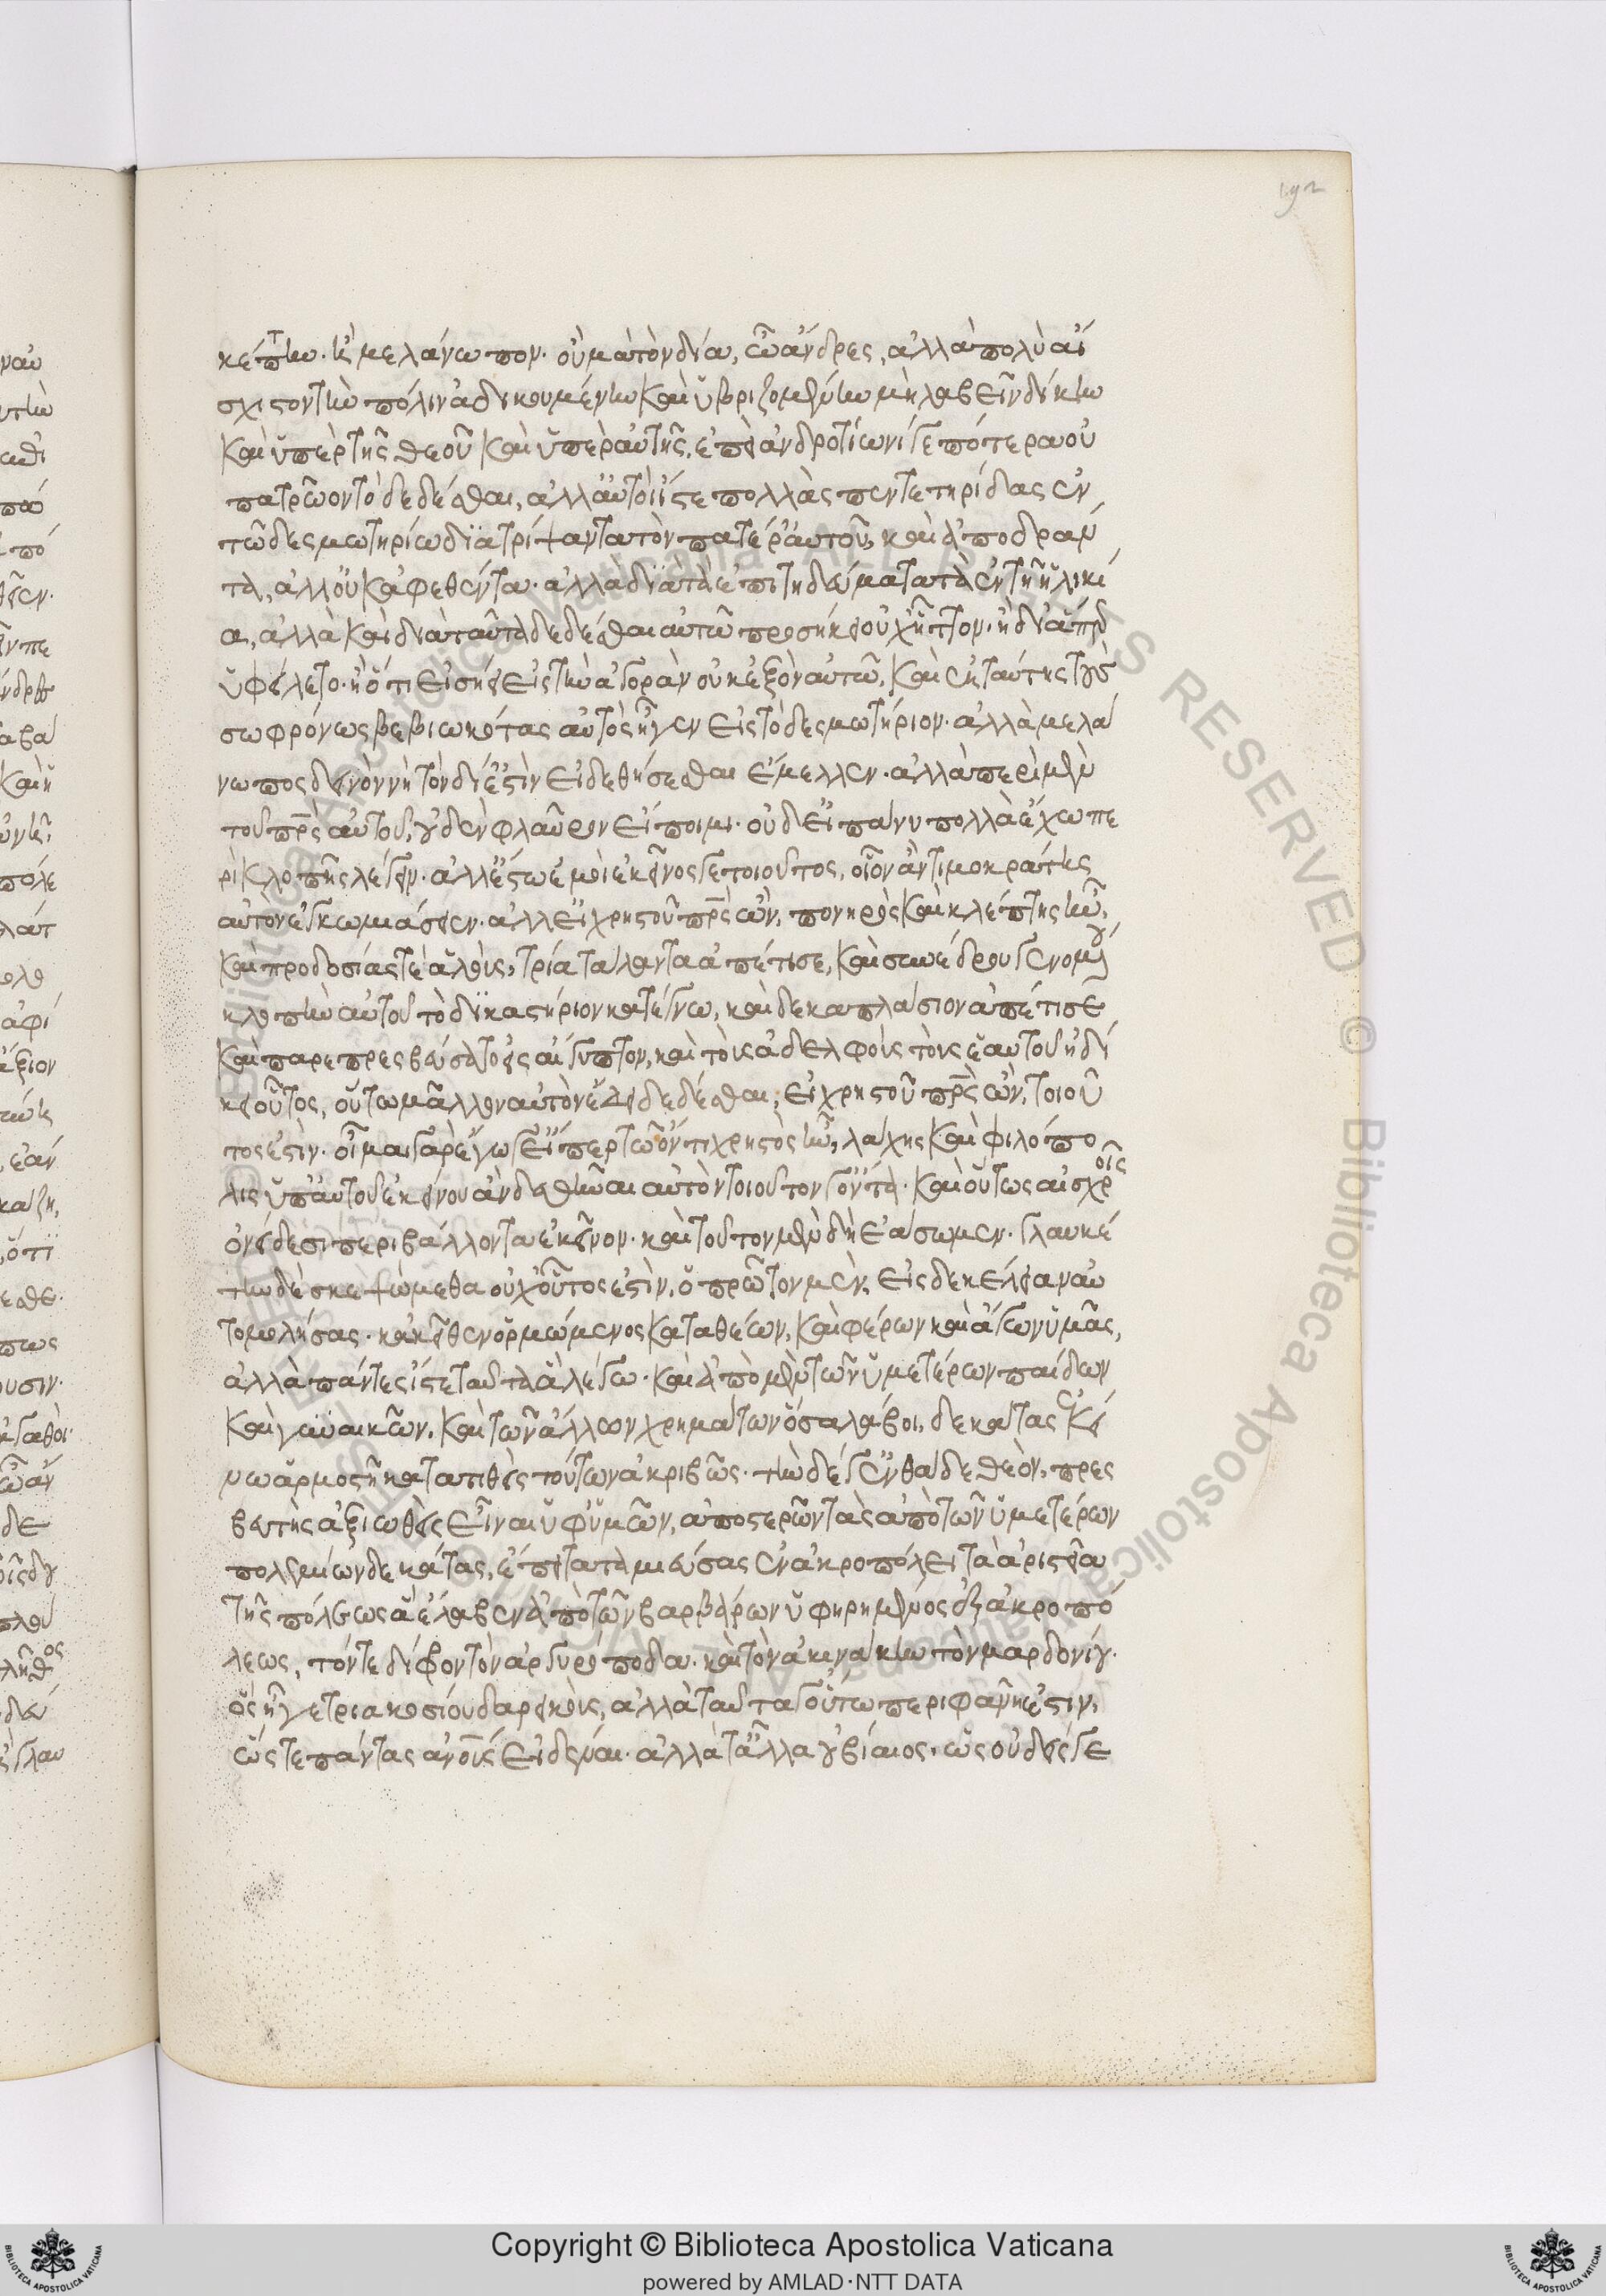 192
κέτην. ἢ μελάνωπον. οὐ μὰ τὸν δία, ὦ ἄνδρες, ἀλλὰ πολὺ αἴ
σχιστον τὴν πόλιν ἀδικουμένην καὶ ὑβριζομένην μὴ λαβεῖν δίκην
καὶ ὑπὲρ τῆς θεοῦ καὶ ὑπὲρ αὑτῆς. ἐπεὶ ἀνδροτίωνί γε πότερα οὐ
πατρῶον τὸ δεδέσθαι, ἀλλ' αὐτοὶ ἴστε πολλὰς πεντετηρίδας ἐν
τῷ δεσμωτηρίῳ διατρίψαντα τὸν πατέρ' αὐτοῦ, καὶ ἀποδράν
τα, ἀλλ' οὐκ ἀφεθέντα. ἀλλὰ διὰ τὰ ἐπιτηδεύματα τὰ ἐν τῇ ἡλικί
α, ἀλλὰ καὶ διὰ ταῦτα δεδέσθαι αὐτῷ προσῆκει οὐχ ἧττον. ἢ δι' ἅπερ
ὑφείλετο. ἢ ὅτι εἰσῄει εἰς τὴν ἀγορὰν οὐκ ἐξὸν αὐτῷ. καὶ ἐκ ταύτης τοὺς
σωφρόνως βεβιωκότας αὐτὸς ἦγεν εἰς τὸ δεσμωτήριον. ἀλλὰ μελά
νωπος δεινὸν νὴ τὸν δί' ἐστὶν εἰ δεθήσεσθαι ἔμελλεν. ἀλλὰ περὶ μὲν
τοῦ πρς αὐτοῦ, οὐδὲν φλαῦρον εἴποιμι. οὐδ' εἰ πάνυ πολλὰ ἔχω πε
ρὶ κλοπῆς λέγειν. ἀλλ' ἔστω ἐμοὶ ἐκεῖνός γε τοιοῦτος, οἷον ἂν τιμοκράτης
αὐτὸν ἐγκωμιάσειεν. ἀλλ' εἰ χρηστοῦ πρς ὢν, πονηρὸς καὶ κλέπτης ἦν,
καὶ προδοσίας τε ἁλοὺς, τρία τάλαντα ἀπέτισε, καὶ συνέδρου γενομένου
κλοπὴν αὐτοῦ τὸ δικαστήριον κατέγνω, καὶ δεκαπλάσιον ἀπέτισε
καὶ παρεπρεσβεύσατο εἰς αἴγυπτον, καὶ τοὺς ἀδελφοὺς τοὺς ἑαυτοῦ ἠδί
κει οὗτος, οὕτω μᾶλλον αὐτὸν ἔδει δεδέσθαι, εἰ χρηστοῦ πρς ὢν, τοιοῦ
τος ἐστὶν. οἶμαι γὰρ ἔγωγε εἴπερ τῷ ὄντι χρηστὸς ἦν, λάχης καὶ φιλόπο
λις ὑπ' αὐτοῦ ἐκείνου ἂν δεθῆναι αὐτὸν τοιοῦτον γ' ὄντα. καὶ οὕτως αἰσχροῖς
ὀνείδεσι περιβάλλοντα ἐκεῖνον. καὶ τοῦτον μὲν δὴ ἐάσωμεν. γλαυκέ
την δὲ σκεψώμεθα οὐχ οὗτος ἐστὶν, ὁ πρῶτον μὲν, εἰς δεκέλειαν αὐ
τομολήσας. κἀκεῖθεν ὁρμώμενος καταθέων, καὶ φέρων καὶ ἄγων ὑμᾶς,
ἀλλὰ πάντες ἴστε ταῦτα ἃ λέγω. καὶ ἀπὸ μὲν τῶν ὑμετέρων παίδων
καὶ γυναικῶν, καὶ τῶν ἄλλων χρημάτων ὅσα λάβοι, δεκάτας ἐκεῖ
νῳ ἁρμοστῇ κατατιθεὶς τούτων ἀκριβῶς. τὴν δέ γ' ἐνθάδε θεὸν, πρες
βευτὴς ἀξιωθεὶς εἶναι ὑφ' ὑμῶν, ἀποστερῶν τὰς ἀπὸ τῶν ὑμετέρων
πολεμίων δεκάτας, ἔπειτα ταμιεύσας ἐν ἀκροπόλει τὰ ἀριστεῖα
τῆς πόλεως ἃ ἔλαβεν ἀπὸ τῶν βαρβάρων ὑφηρημένος ἐξ ἀκροπό
λεως, τόν τε δίφρον τὸν ἀργυρόποδα. καὶ τὸν ἀκινάκην τὸν μαρδονίου.
ὃς ἦγε τριακοσίους δαρεικοὺς, ἀλλὰ ταῦτα γ' οὕτω περιφανῆ ἐστιν,
ὥστε πάντας ἀνους εἰδέναι. ἀλλὰ τἆλλα οὐ βίαιος, ὡς οὐδεὶς γε